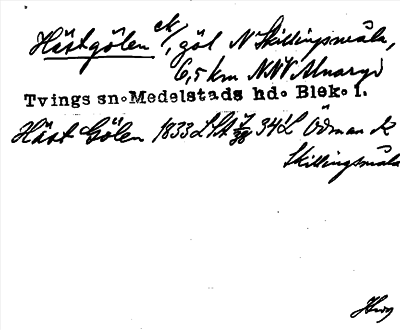 Hästgölen ck/, göl N Skillingsmåla,
6,5 km NNV Alnaryd
Tvings sn. Medelstads hd. Blek. l.
Häst Gölen 1833 LSA 34 L Ödman k
Skillingsmåla